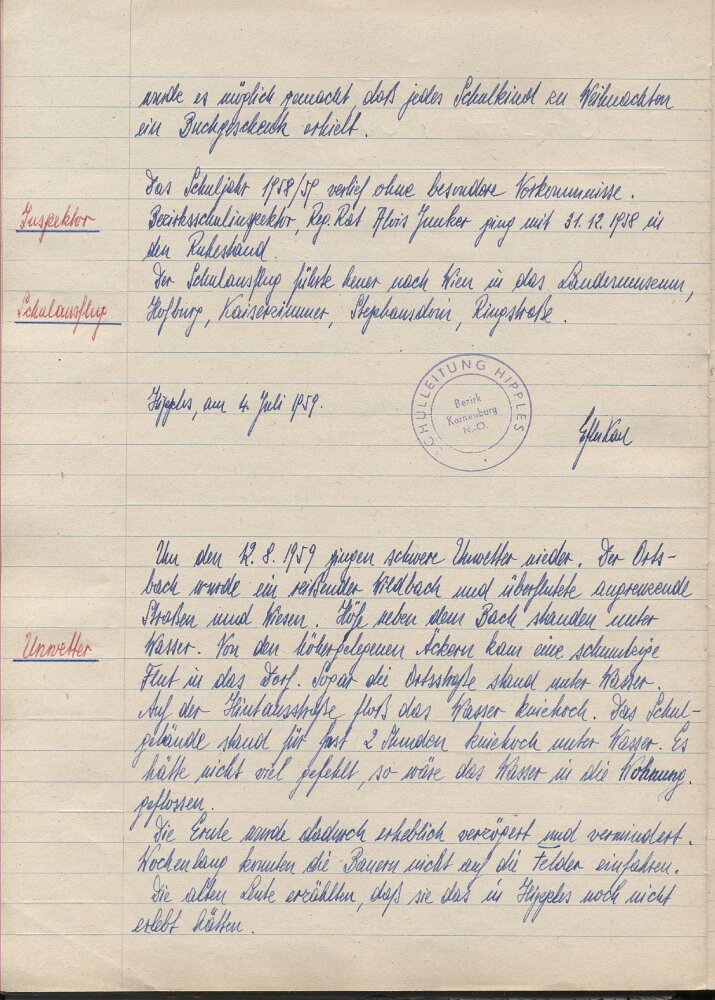 wurde es möglich gemacht, daß jedes Schulkind zu Weihnachten
ein Buchgeschenk erhielt.
Das Schuljahr 1958/59 verlief ohne besondere Vorkommnisse.
Inspektor
Bezirksschulinspektor, Reg. Rat Alois Junker ging mit 31.12.1958 in
den Ruhestand.
Der Schulausflug führte heuer nach Wien in das Landesmuseum,
Schulausflug
Hofburg, Kaiserzimmer, Stephansdom, Ringstraße.
Hipples, am 4. Juli 1959.
SCHULLEITUNG HIPPLES
Bezirk
Korneuburg
N.-Ö.
Karl
Um den 12.8.1959 gingen schwere Unwetter nieder. Der Orts-
bach wurde ein reißender Wildbach und überflutete angrenzende
Straßen und Wiesen. Höfe neben dem Bach standen unter
Unwetter
Wasser. Von den höhergelegenen Äckern kam eine schmutzige
Flut in das Dorf. Sogar die Ortsstraße stand unter Wasser.
Auf der Hintausstraße floß das Wasser kniehoch. Das Schul-
gebäude stand für fast 2 Stunden kniehoch unter Wasser. Es
hätte nicht viel gefehlt, so wäre das Wasser in die Wohnung
geflossen.
Die Ernte wurde dadurch erheblich verzögert und vermindert.
Wochenlang konnten die Bauern nicht auf die Felder einfahren.
Die alten Leute erzählten, daß sie das in Hipples noch nicht
erlebt hätten.